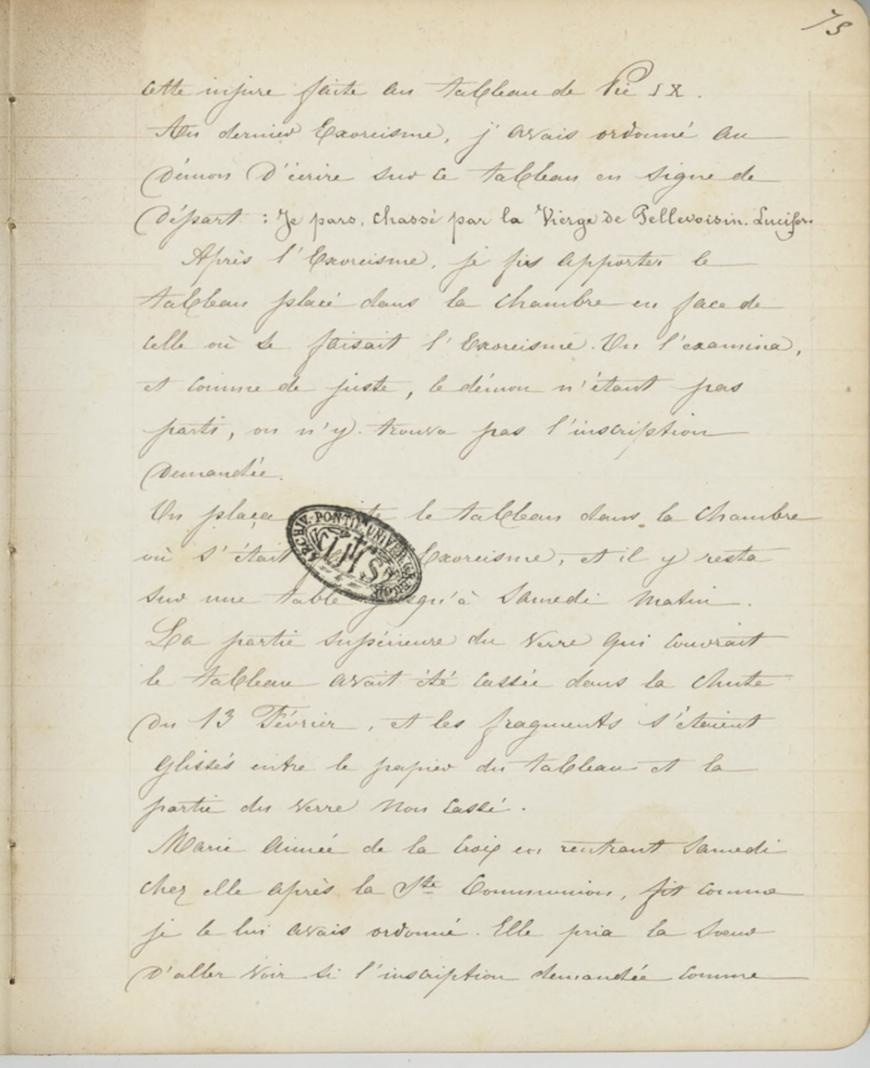 75
cette injure faite au tableau de Pie IX.
Au dernier Exorcisme, j'avais ordonné au
Démon D'écrire sur ce tableau en signe de
Départ : Je pars, chassé par la Vierge de Pellevoisin. Lucifer.
Après l'Exorcisme, je fis apporter le
tableau placé dans la chambre en face de
celle où se faisait l'Exorcisme. On l'examina,
et comme de juste, le démon n'étant pas
parti, on n'y trouva pas l'inscription
Demandée.
On plaça le tableau dans la chambre
où s'était Exorcisme, et il y resta
sur une table jusqu'à Samedi matin.
La partie supérieure du verre qui couvrait
le tableau avait été cassée dans la chute
Du 13 Février, et les fragments s'étaient
glissés entre le papier du tableau et la
partie du verre non cassé.
Marie Aimée de la Croix en rentrant Samedi
chez elle après la Ste Communion, fit comme
je le lui avais ordonné. Elle pria la Soeur
D'aller voir si l'inscription demandée comme
ARCHIV. PONTIF. UNIVER. GREGOR.
IHS